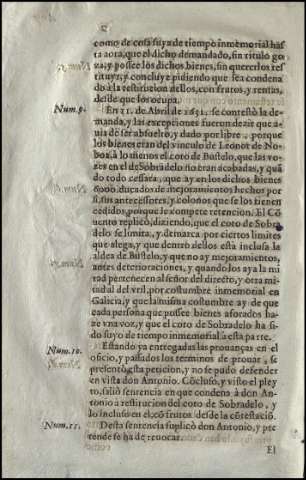 como de cosa suya de tiempo inmemorial has
ta aora, que el dicho demandado, sin titulo go
za, y possee los dichos bienes, sin quererlos res
tituyr, y concluye pidiendo que sea condena
do a la restitucion dellos, con frutos, y rentas,
desde que los ocupa.
Num.9. En 21. de Abril de 1631. se contestò la de-
manda, y las excepciones fueron dezir que a-
uia de ser absuelto, y dado por libre, porque
los bienes eran del vinculo de Leonor de No-
boa, a lo menos el coto de Bustelo, que las vo-
zes en el de Sobradelo no eran acabadas, y quã
do todo cessara, que ay en los dichos bienes
6000. ducados de mejoramientos hechos por
si, sus antecessores, y colonos que se los tienen
cedidos, porque le compete retencion. El Cõ
uento replicò, diziendo, que el coto de Sobra
delo se limita, y demarca por ciertos limites
que alega, y que dentro dellos està inclusa la
aldea de Bustelo, y que no ay mejoramientos,
antes deterioraciones, y quando los aya la mi
tad pertenecen al señor del directo, y otra mi
tad del vtil, por costumbre inmemorial en
Galicia, y que la misma costumbre ay de que
cada persona que possee bienes aforados ha-
ze vna voz, y que el coto de Sobradelo ha si-
do suyo de tiempo inmemorial à esta parte.
Num.10. Estando ya entregadas las prouanças en el
oficio, y passados los terminos de prouar, se
presentò esta peticion, y no se pudo defender
en vista don Antonio. Cõcluso, y visto el pley
to, saliò sentencia en que condena à don An
tonio a restitucion del coto de Sobradelo, y
lo incluso en el cõ frutos desde la cõtestaciõ.
Num.11. Desta sentencia suplicò don Antonio, y pre
tende se ha de reuocar.
El